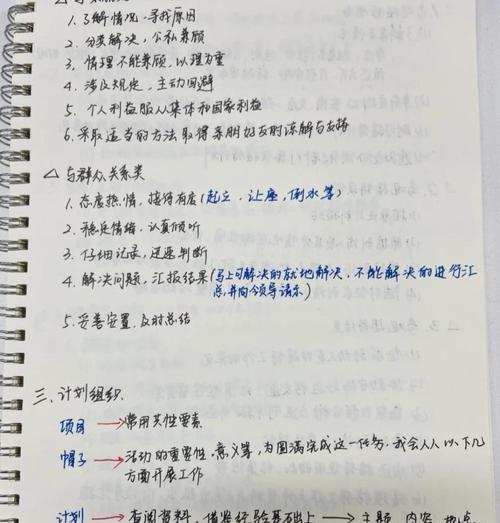 1. 了解情况、寻找原因
2. 分类解决，公私兼顾
3. 情理不能兼顾，以理为重
4. 涉及规定，主动回避
5. 个人利益服从集体和国家利益
6. 采取适当的方法取得亲朋好友的谅解与支持
△ 与群众关系类
1. 态度热情，接待有度(起立、让座、倒水等)
2. 稳定情绪、认真倾听
3. 仔细记录、迅速判断
4. 解决问题，汇报结果(马上可解决的就地解决，不能解决的进行汇
总并向领导请示)
5. 妥善安置、及时总结
三、计划组织.
项目 → 常用共性要素
帽子 → 活动的重要性、意义等，为圆满完成这一任务，我会从以下几
方面开展工作
计划 → 查阅资料，借鉴经验基础上 → 主题、内容、地点